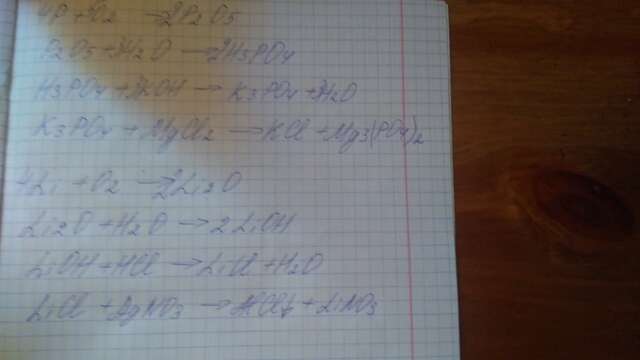 4P + O2 → 2P2O5
P2O5 + 3H2O → 2H3PO4
H3PO4 + 3KOH → K3PO4 + 3H2O
K3PO4 + MgCl2 → KCl + Mg3(PO4)2
4Li + O2 → 2Li2O
Li2O + H2O → 2LiOH
LiOH + HCl → LiCl + H2O
LiCl + AgNO3 → AgCl↓ + LiNO3